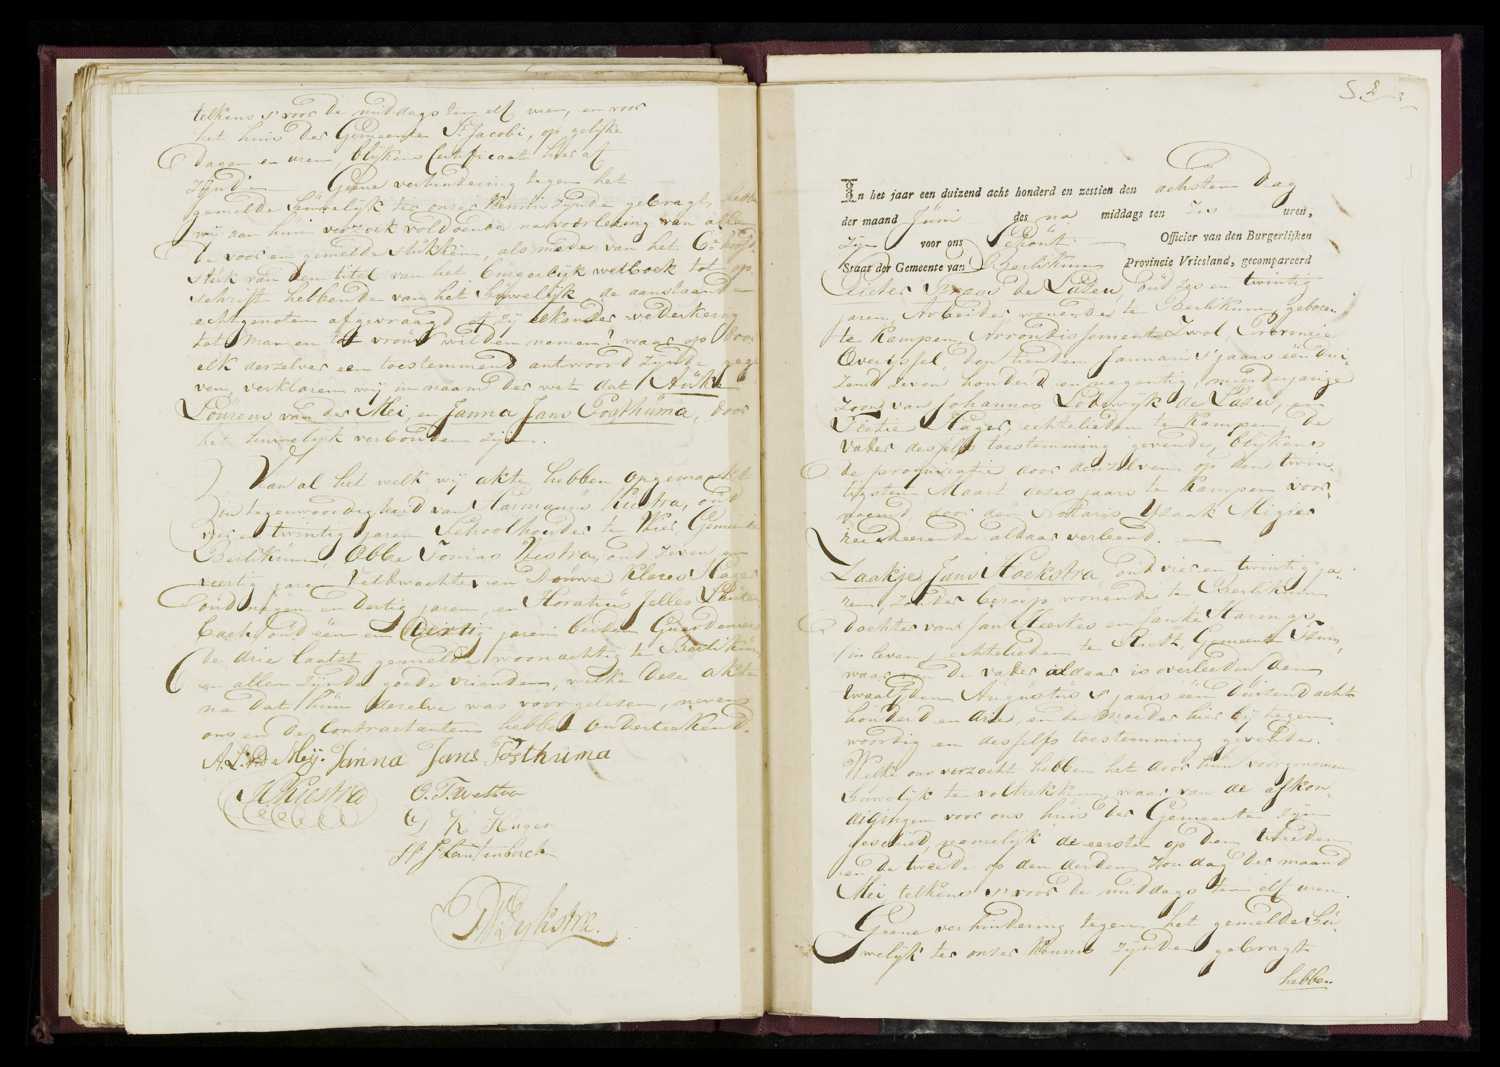 telkens s'voor de middags ten elf uren, en voor
het huis der Gemeente St. Jacobi, op gelijke
dagen en uren, blijkens Certificaat hier af
zijnde. Geene verhindering tegen het
gemelde Huwelijk ter onser kennis zijnde gebragt, hebben
wij aan hun verzoek voldoende na voorlezing van alle
de voor en gemelde stukken, alsmede van het 6e hoofd-
stuk van den titel van het burgerlijk wetboek tot op
schrift hebbende van het Huwelijk de aanstaande
echtgenoten afgevraagd of zij elkander wederkerig
tot Man en tot vrouw wilden nemen? waar op door
elk derzelver een toestemmend antwoord zijnde gege
ven, verklaren wij in naam der wet dat Auke
Lourens van der Meij, en Janna Jans Posthuma, door
het huwelijk verbonden zijn.
Van al het welk wij akte hebben opgemaakt
in tegenwoordigheid van Harmanus Kiestra, oud
drie en twintig jaren Schoolhouder te Wier, Gemeente
Berlikum, Obbe Tonias Westra, oud zeven en
veertig jaren Veldwachter van Douwe Klases Hager
oud negen en dertig jaren, en Horatius Jelles Lauten
bach oud één en dertig jaren beiden Gardeniers
de drie laatst gemelde woonachtig te Berlikum,
en allen zijnde goede vrienden, welke deze akte
na dat hun deselve was voorgelesen, nevens
ons en de Contractanten hebben ondertekend.
A. L. v. d. Meij. Janna Jans Posthuma
H. Kiestra O. T. Westra
D K Hager
H. J. Lautenbach
Dijkstra.
In het jaar een duizend acht honderd en zestien den achsten dag
der maand Juni des na middags ten zes uren,
zijn voor ons Officier van den Burgerlijken
Staat der Gemeente van Berlikum Provincie Vriesland, gecompareerd
Pieter Frans de Laseu, oud zes en twintig
jaren, Arbeider wonende te Berlikum, geboren
te Kampen, Arrondissement Zwol, Provincie
Overijssel, den tienden Januari s'jaars één dui
zend zeven honderd en negentig, meerderjarige
zoon van Johannes Lodewijk de Laseu, en
Hager, echtelieden te Kampen, de
vader desselfs toestemming gevende, blijkens
de procuratie door denzelven op den twin
tigsten Maart dezes jaars te Kampen voor
noemd voor den Notaris Izaak Migier
resideerende aldaar verleend. en
Taakje Jans Hoekstra, oud vier en twintig ja
ren, zonder beroep wonende te Berlikum
dochter van Jan Meertes en Janke Harings
in leven echtelieden te Ried, Gemeente
waar van de vader aldaar is overleeden den
twaalfden Augustus s'jaars één duizend acht
honderd en drie, en de moeder hier bij tegen
woordig en desselfs toestemming gevende.
Welke ons verzocht hebben het door hun voorgenomen
Huwelijk te voltrekken, waar van de afkon
digingen voor ons huis der Gemeente zijn
geschied, namelijk de eerste op den tweeden
en de tweede op den derden Zondag der maand
Mei telkens s'voor de middags ten elf uren.
Geene verhindering tegen het gemelde Hu
welijk ter onser kennis zijnde gebragt
hebben